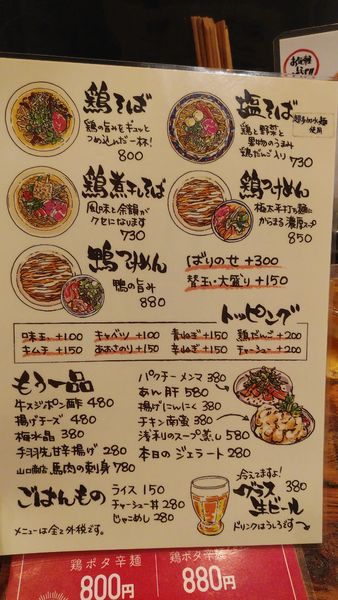 鶏そば
鶏の旨みをギュッと
つめ込んだ一杯!
800
塩そば
超多加水麺
使用
鶏と野菜と
果物のうまみ
鶏だんご入り 730
鶏煮干しそば
風味と余韻が
クセになります
730
鶏つけめん
極太平打ち麺に
からまる濃厚スープ
850
鴨つけめん
鴨の旨み
880
ばりのせ +300
替玉・大盛り +150
トッピング
味玉 +100 キャベツ +100 青ねぎ +150 鶏だんご +200
キムチ +150 あおさのり +150 辛ねぎ +150 チャーシュー +200
もう一品
牛スジポン酢 480
揚げチーズ 280
梅水晶 380
手羽先甘辛揚げ 280
山口商店 馬肉の刺身 780
パクチーメンマ 380
あん肝 580
揚げにんにく 380
チキン南蛮 380
浅利のスープ蒸し 580
本日のジェラート 280
ごはんもの
ライス 150
チャーシュー丼 280
じゃこめし 280
冷えてますよ!
グラス 380
生ビール
ドリンクはうらです→
メニューは全て外税です。
鶏ポタ辛麺
800円
鶏ポタ辛麺
880円